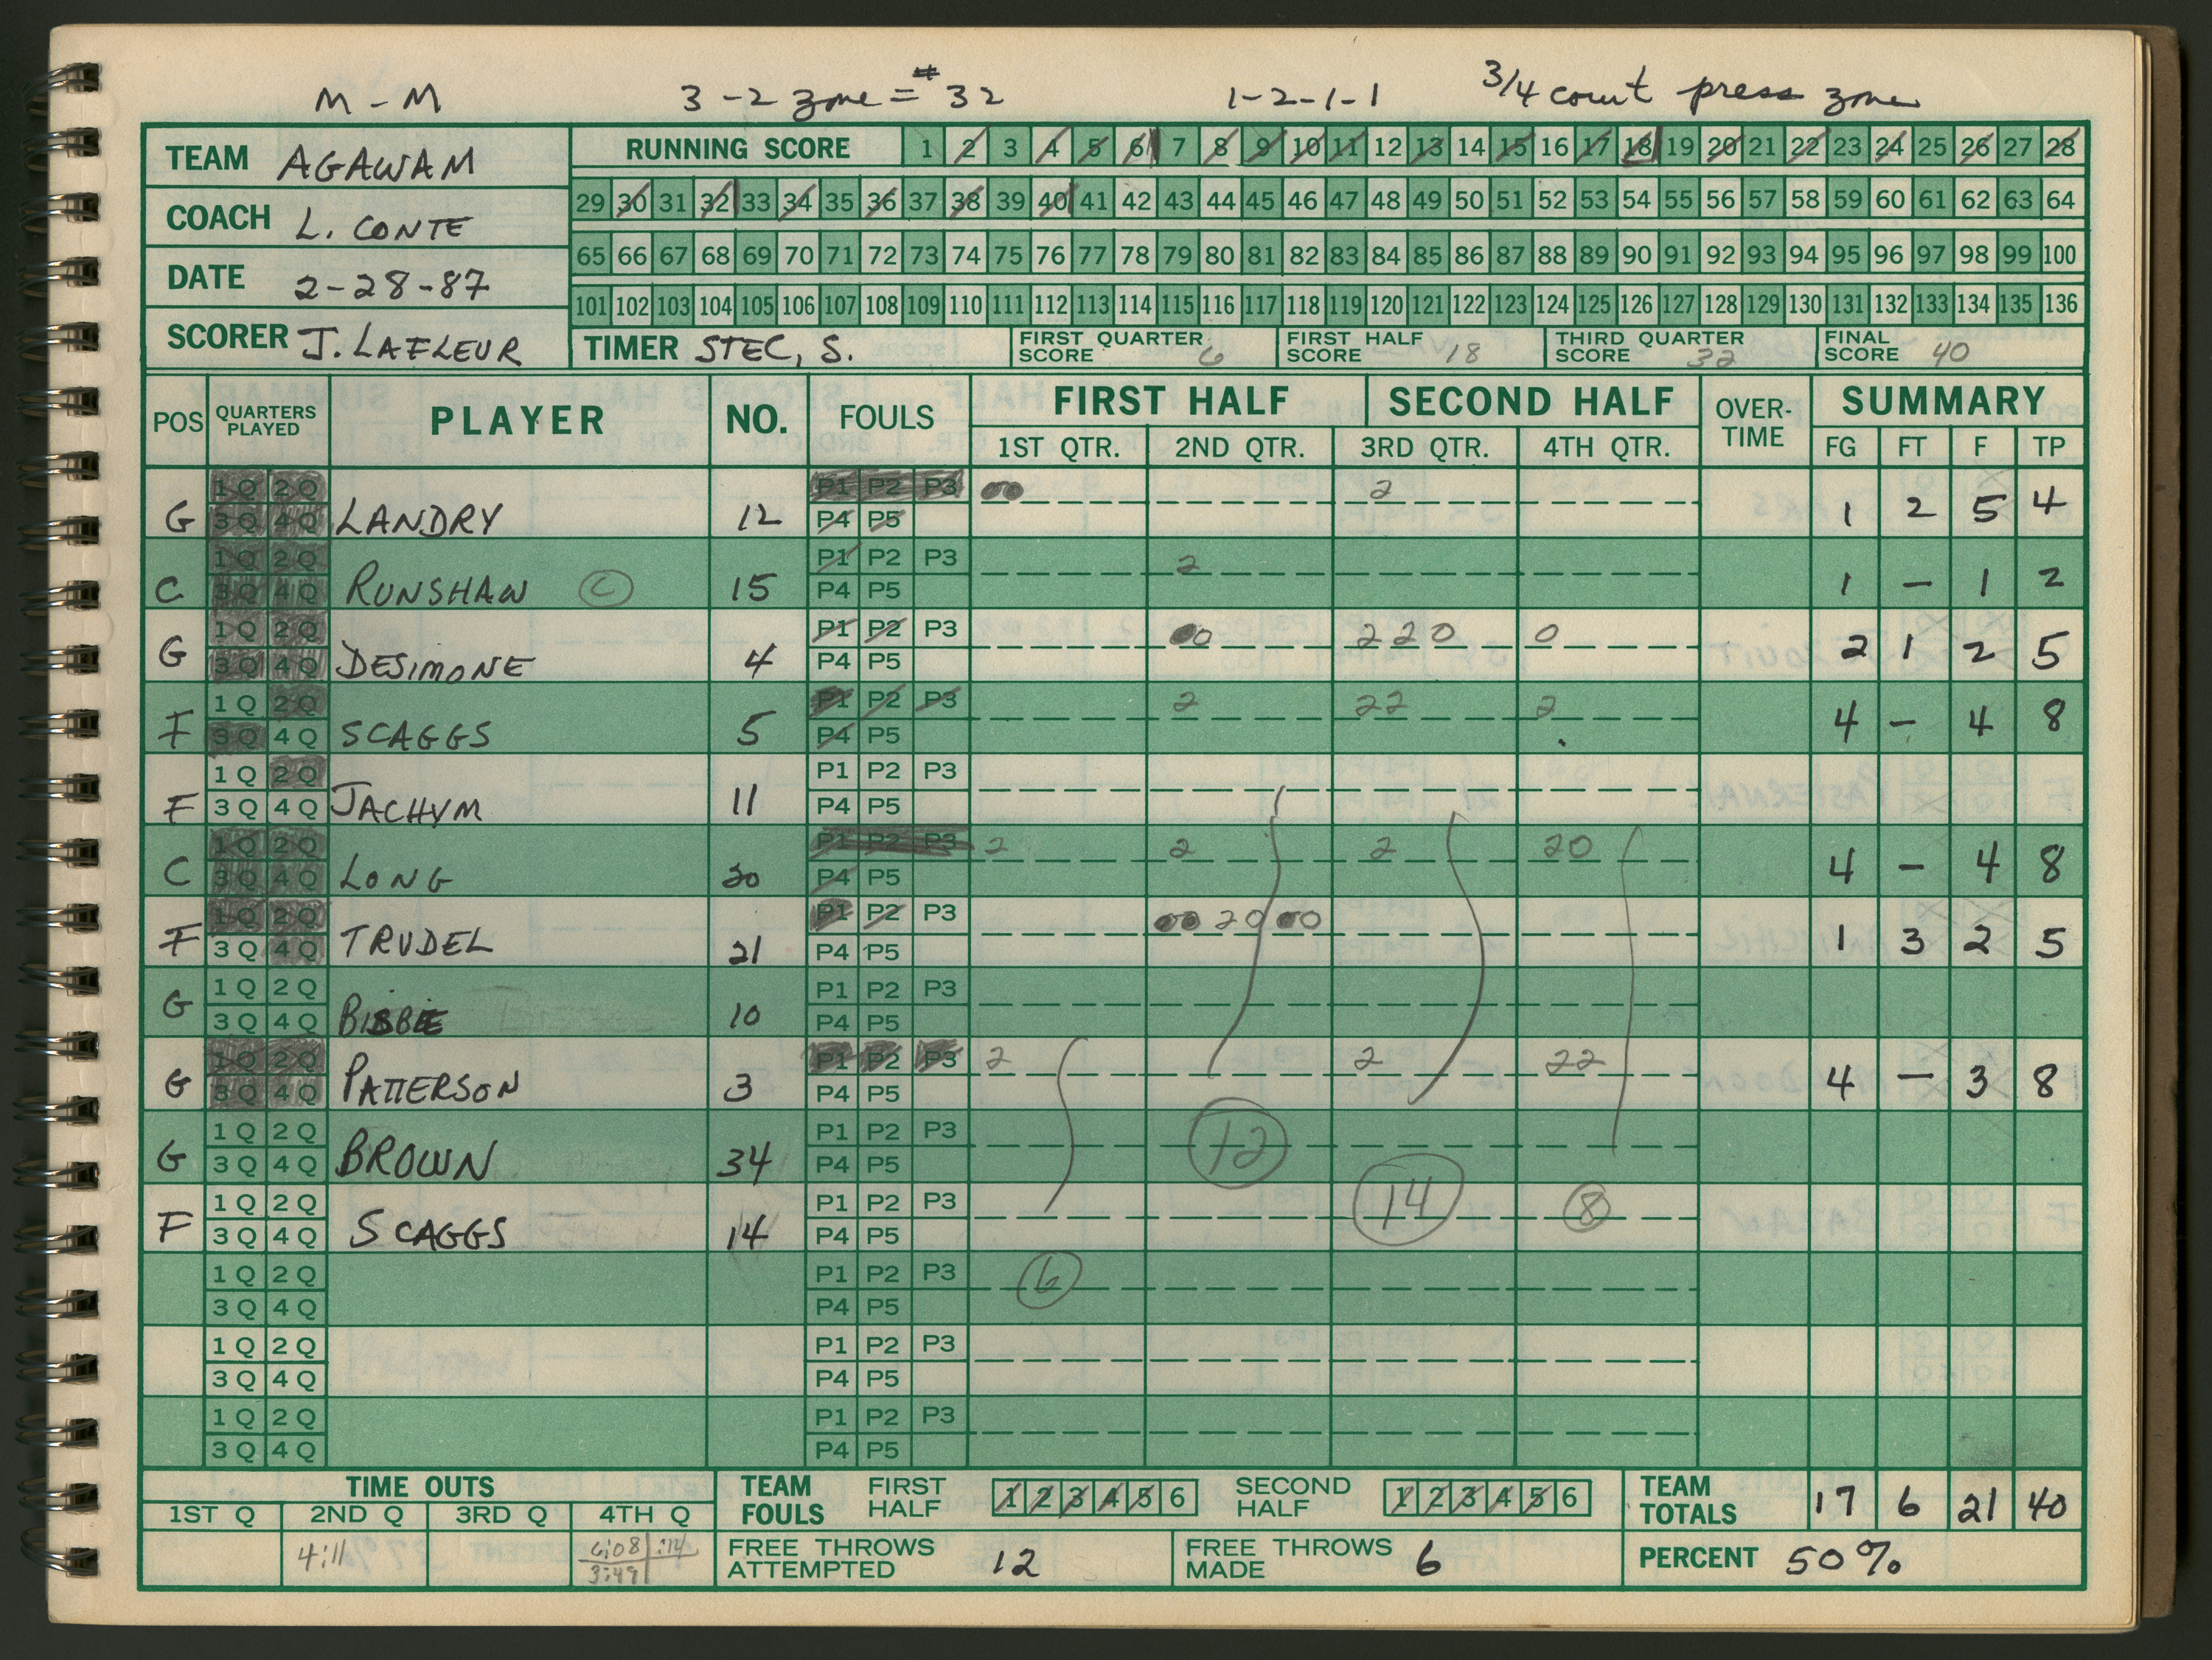 M-M 3-2 zone = #32 1-2-1-1 3/4 court press zone
TEAM AGAWAM
COACH L. CONTE
DATE 2-28-87
SCORER J. LAFLEUR
RUNNING SCORE 1 2 3 4 5 6 7 8 9 10 11 12 13 14 15 16 17 18 19 20 21 22 23 24 25 26 27 28
29 30 31 32 33 34 35 36 37 38 39 40 41 42 43 44 45 46 47 48 49 50 51 52 53 54 55 56 57 58 59 60 61 62 63 64
65 66 67 68 69 70 71 72 73 74 75 76 77 78 79 80 81 82 83 84 85 86 87 88 89 90 91 92 93 94 95 96 97 98 99 100
101 102 103 104 105 106 107 108 109 110 111 112 113 114 115 116 117 118 119 120 121 122 123 124 125 126 127 128 129 130 131 132 133 134 135 136
TIMER STEC, S. FIRST QUARTER SCORE 6 FIRST HALF SCORE 18 THIRD QUARTER SCORE 32 FINAL SCORE 40
POS QUARTERS PLAYED PLAYER NO. FOULS FIRST HALF SECOND HALF OVER-TIME SUMMARY
1ST QTR. 2ND QTR. 3RD QTR. 4TH QTR. FG FT F TP
1Q 2Q P1 P2 P3 2
G 3Q 4Q LANDRY 12 P4 P5 1 2 5 4
1Q 2Q P1 P2 P3 2
C 3Q 4Q RUNSHAW C 15 P4 P5 1 - 1 2
1Q 2Q P1 P2 P3 0 220 0
G 3Q 4Q DESIMONE 4 P4 P5 2 1 2 5
1Q 2Q P1 P2 P3 2 22 2
F 3Q 4Q SCAGGS 5 P4 P5 4 - 4 8
1Q 2Q P1 P2 P3
F 3Q 4Q JACHYM 11 P4 P5
1Q 2Q P1 P2 P3 2 2 2 20
C 3Q 4Q LONG 30 P4 P5 4 - 4 8
1Q 2Q P1 P2 P3 20 0
F 3Q 4Q TRUDEL 21 P4 P5 1 3 2 5
1Q 2Q P1 P2 P3
G 3Q 4Q BISBEE 10 P4 P5
1Q 2Q P1 P2 P3 2 2 22
G 3Q 4Q PATTERSON 3 P4 P5 4 - 3 8
1Q 2Q P1 P2 P3 12
G 3Q 4Q BROWN 34 P4 P5
1Q 2Q P1 P2 P3 14 8
F 3Q 4Q SCAGGS 14 P4 P5
1Q 2Q P1 P2 P3 6
3Q 4Q P4 P5
1Q 2Q P1 P2 P3
3Q 4Q P4 P5
1Q 2Q P1 P2 P3
3Q 4Q P4 P5
TIME OUTS
1ST Q 2ND Q 3RD Q 4TH Q
4:11 6:08 :14
3:49
TEAM FOULS FIRST HALF 1 2 3 4 5 6 SECOND HALF 1 2 3 4 5 6 TEAM TOTALS 17 6 21 40
FREE THROWS ATTEMPTED 12 FREE THROWS MADE 6 PERCENT 50%